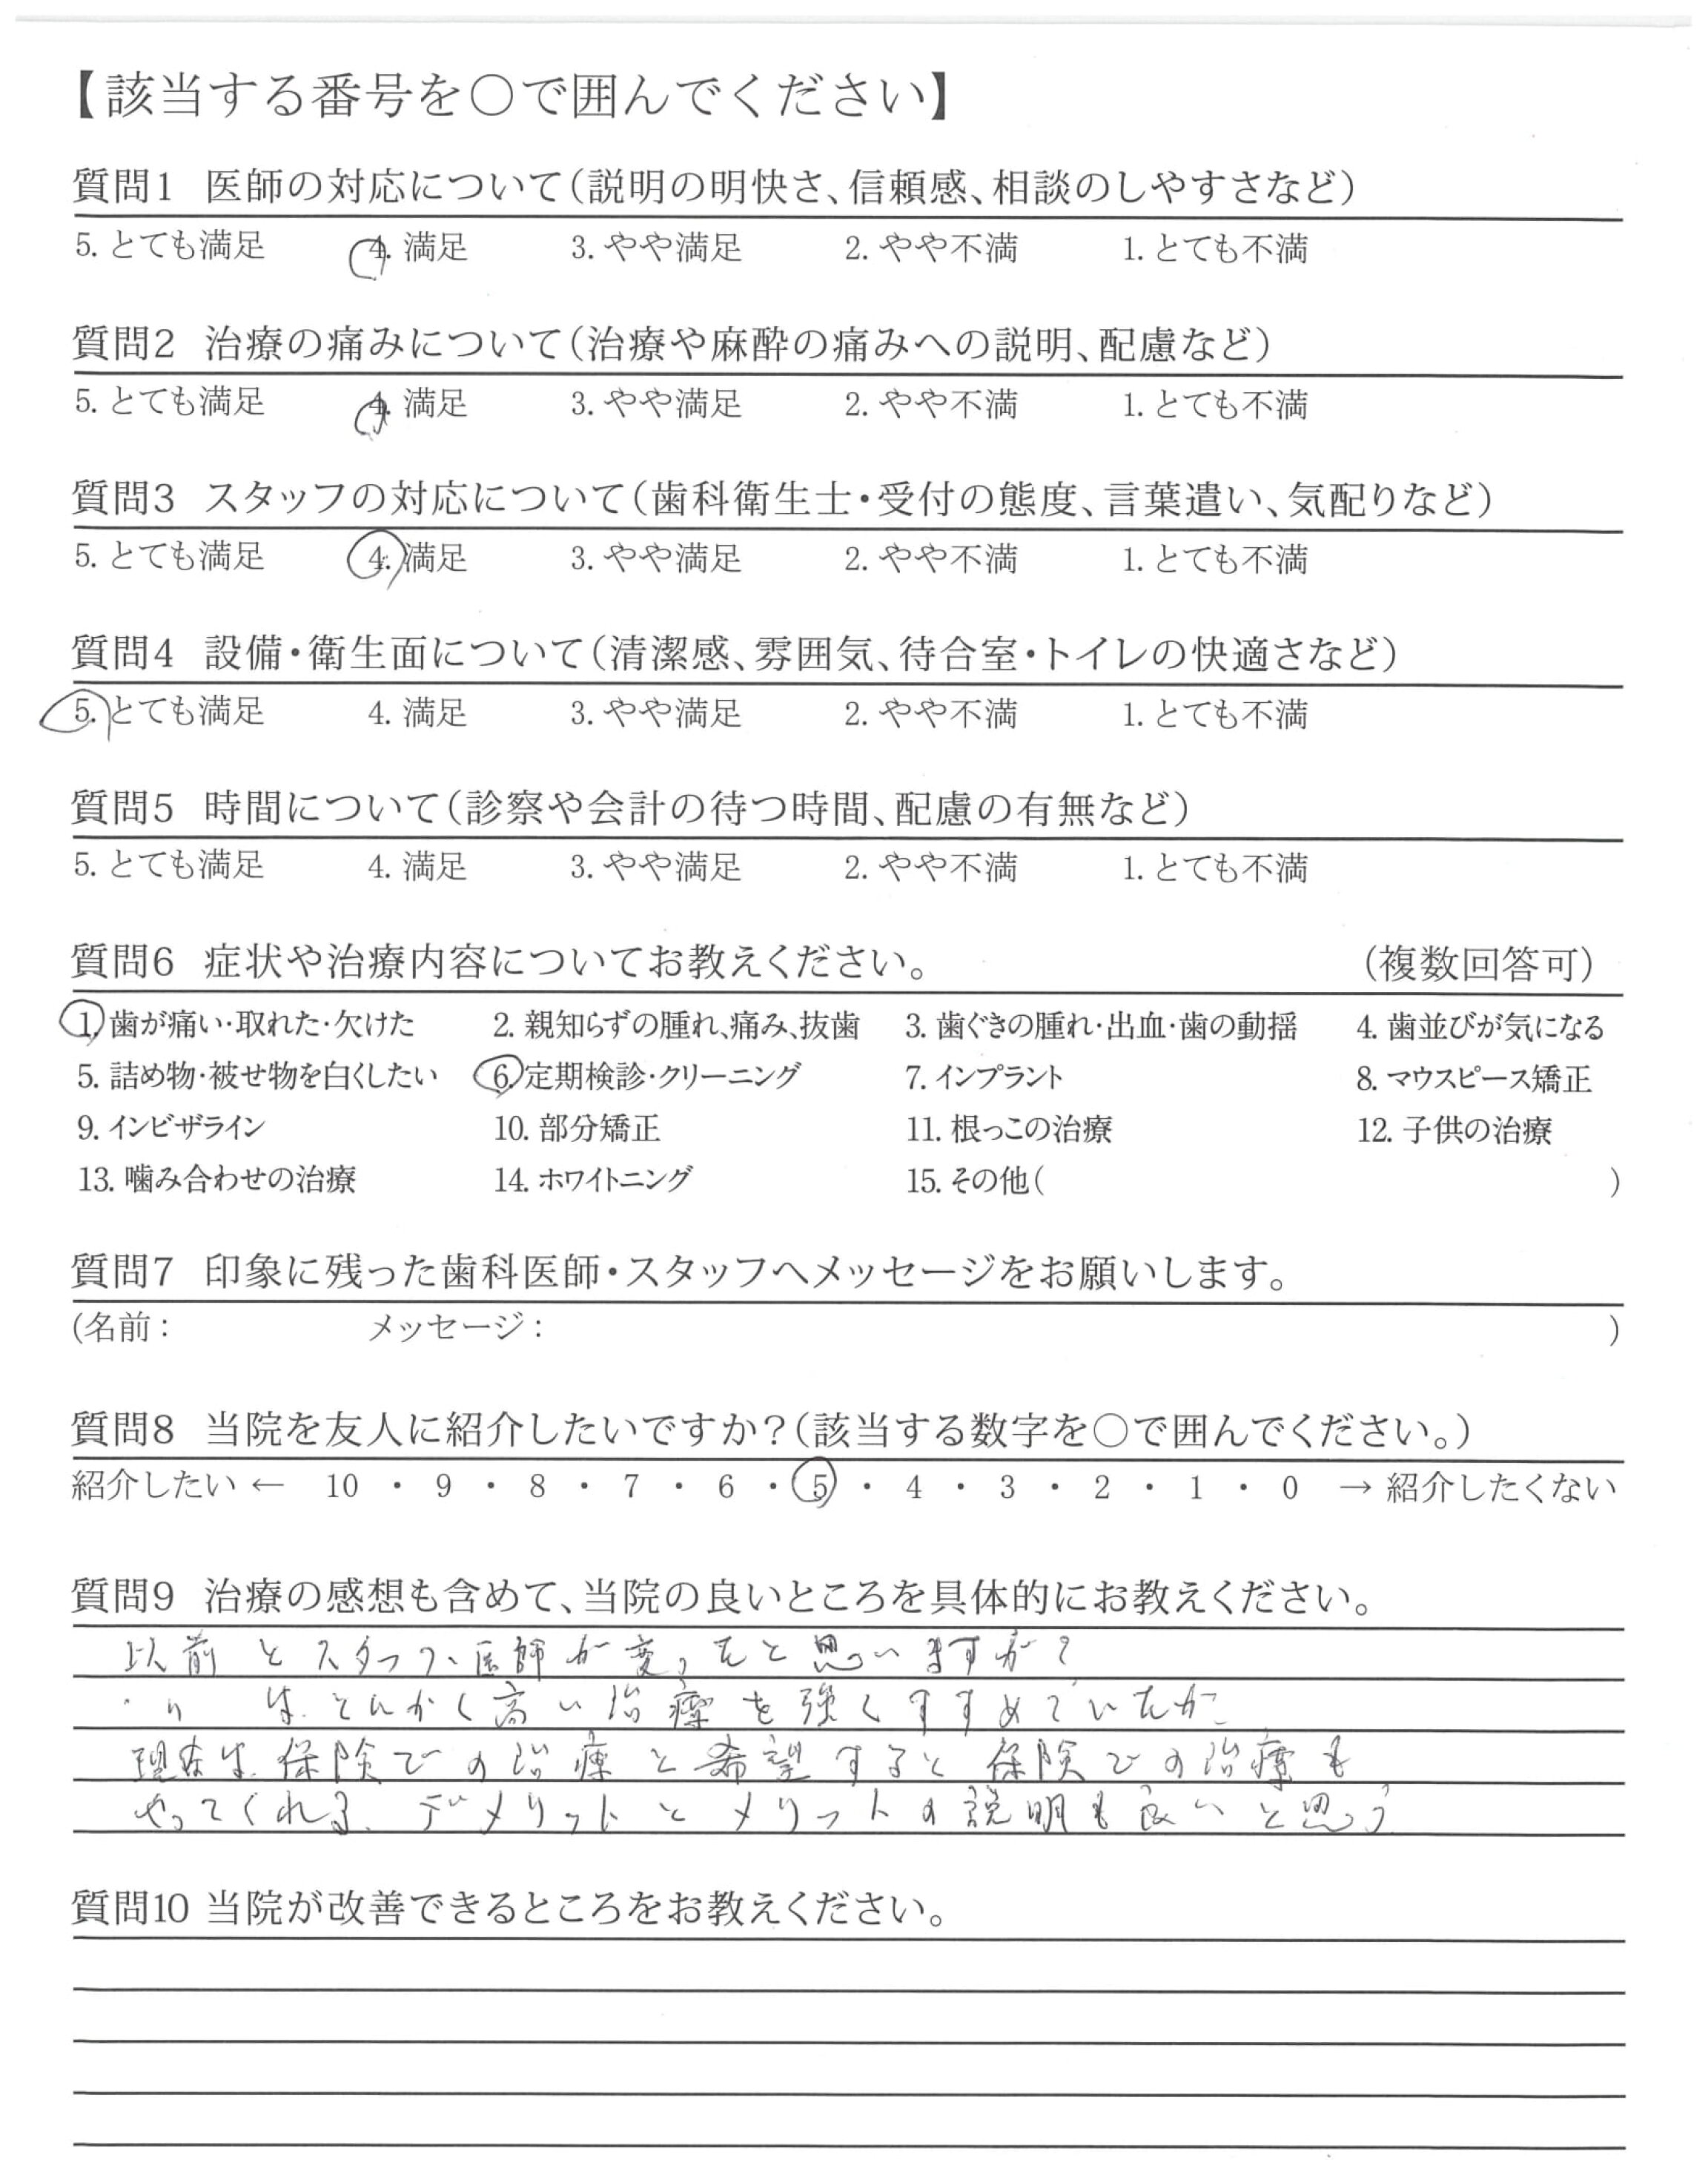 【該当する番号を○で囲んでください】
質問1 医師の対応について(説明の明快さ、信頼感、相談のしやすさなど)
5. とても満足 4. 満足 3. やや満足 2. やや不満 1. とても不満
質問2 治療の痛みについて(治療や麻酔の痛みへの説明、配慮など)
5. とても満足 4. 満足 3. やや満足 2. やや不満 1. とても不満
質問3 スタッフの対応について(歯科衛生士・受付の態度、言葉遣い、気配りなど)
5. とても満足 4. 満足 3. やや満足 2. やや不満 1. とても不満
質問4 設備・衛生面について(清潔感、雰囲気、待合室・トイレの快適さなど)
5. とても満足 4. 満足 3. やや満足 2. やや不満 1. とても不満
質問5 時間について(診察や会計の待つ時間、配慮の有無など)
5. とても満足 4. 満足 3. やや満足 2. やや不満 1. とても不満
質問6 症状や治療内容についてお教えください。 (複数回答可)
1. 歯が痛い・取れた・欠けた 2. 親知らずの腫れ、痛み、抜歯 3. 歯ぐきの腫れ・出血・歯の動揺 4. 歯並びが気になる
5. 詰め物・被せ物を白くしたい 6. 定期検診・クリーニング 7. インプラント 8. マウスピース矯正
9. インビザライン 10. 部分矯正 11. 根っこの治療 12. 子供の治療
13. 噛み合わせの治療 14. ホワイトニング 15. その他( )
質問7 印象に残った歯科医師・スタッフへメッセージをお願いします。
(名前: メッセージ: )
質問8 当院を友人に紹介したいですか?(該当する数字を○で囲んでください。)
紹介したい ← 10 ・ 9 ・ 8 ・ 7 ・ 6 ・ 5 ・ 4 ・ 3 ・ 2 ・ 1 ・ 0 → 紹介したくない
質問9 治療の感想も含めて、当院の良いところを具体的にお教えください。
以前とスタッフ、医師が変ったと思いますが?
〃 は、とにかく高い治療を強くすすめていたが
現在は、保険での治療と希望すると保険での治療も
やってくれる、デメリットとメリットの説明も良いと思う
質問10 当院が改善できるところをお教えください。